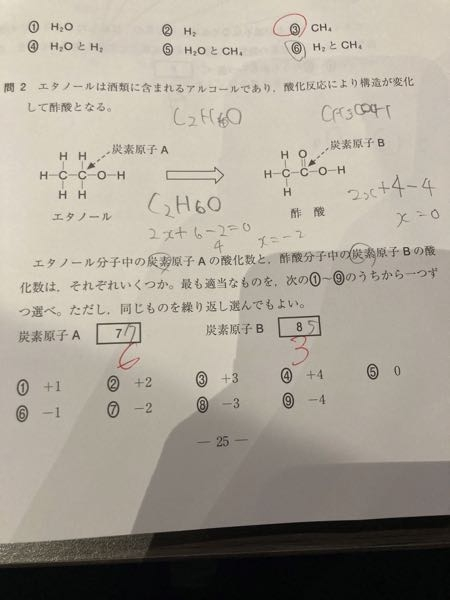 ① H₂O ② H₂ ③ CH₄
④ H₂OとH₂ ⑤ H₂OとCH₄ ⑥ H₂とCH₄
問2 エタノールは酒類に含まれるアルコールであり，酸化反応により構造が変化
して酢酸となる。
C₂H₆O
H H 炭素原子A
H－C－C－O－H
H H
エタノール
H O 炭素原子B
H－C－C－O－H
H
酢酸
C₂H6O
2x+6-2=0
4
x=-2
2x+4-4
x=0
エタノール分子中の炭素原子Aの酸化数と，酢酸分子中の炭素原子Bの酸
化数は，それぞれいくつか。最も適当なものを，次の①～⑨のうちから一つず
つ選べ。ただし，同じものを繰り返し選んでもよい。
炭素原子A 7 7 炭素原子B 8 5
6 3
① +1 ② +2 ③ +3 ④ +4 ⑤ 0
⑥ －1 ⑦ －2 ⑧ －3 ⑨ －4
— 25 —